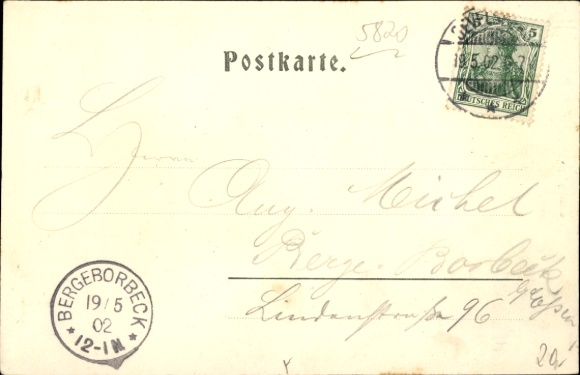 5820
5
18.5.02
DEUTSCHES REICH
Postkarte.
Herrn
Aug. Michel
Berge-Borbeck
Lindenstraße 96
BERGEBORBECK
19/5
02
12-1N
20.